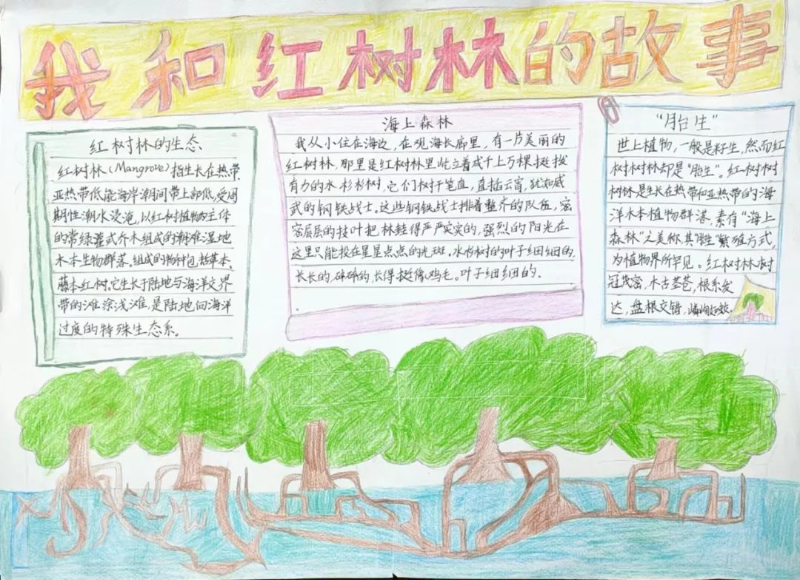 我和红树林的故事
红树林的生态
红树林(Mangrove)指生长在热带、
亚热带低能海岸潮间带上部,受周
期性潮水浸淹,以红树植物为主体
的常绿灌或乔木组成的潮滩湿地
木本生物群落。组成的物种包括草本、
藤本红树。它生长于陆地与海洋交界
带的滩涂浅滩,是陆地向海洋
过度的特殊生态系。
海上森林
我从小住在海边,在观海长廊里,有一片美丽的
红树林,那里是红树林里屹立着成千上万棵挺拔
有力的水杉杉树,它们树干笔直,直插云霄,犹如威
武的钢铁战士。这些钢铁战士排着整齐的队伍,密
密层层的枝叶把林遮得严严实实的,强烈的阳光在
这里只能投在星星点点的光斑。水杉树的叶子细细的、
长长的、碎碎的,长得挺像鸡毛。叶子细细的、
.
“胎生”
世上植物,一般是籽生,然而红
树树林却是“胎生”。红树树
树林是生长在热带和亚热带的海
洋木本植物群落,素有“海上
森林”之美称,其“胎生”繁殖方式,
为植物界所罕见。红树林树
冠茂密,木古苍苍,根系发
达,盘根交错,